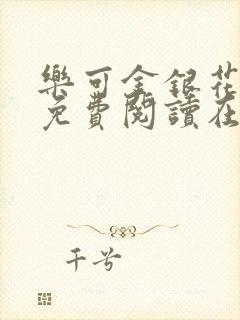 樂可金銀花
免費閱讀在
千兮